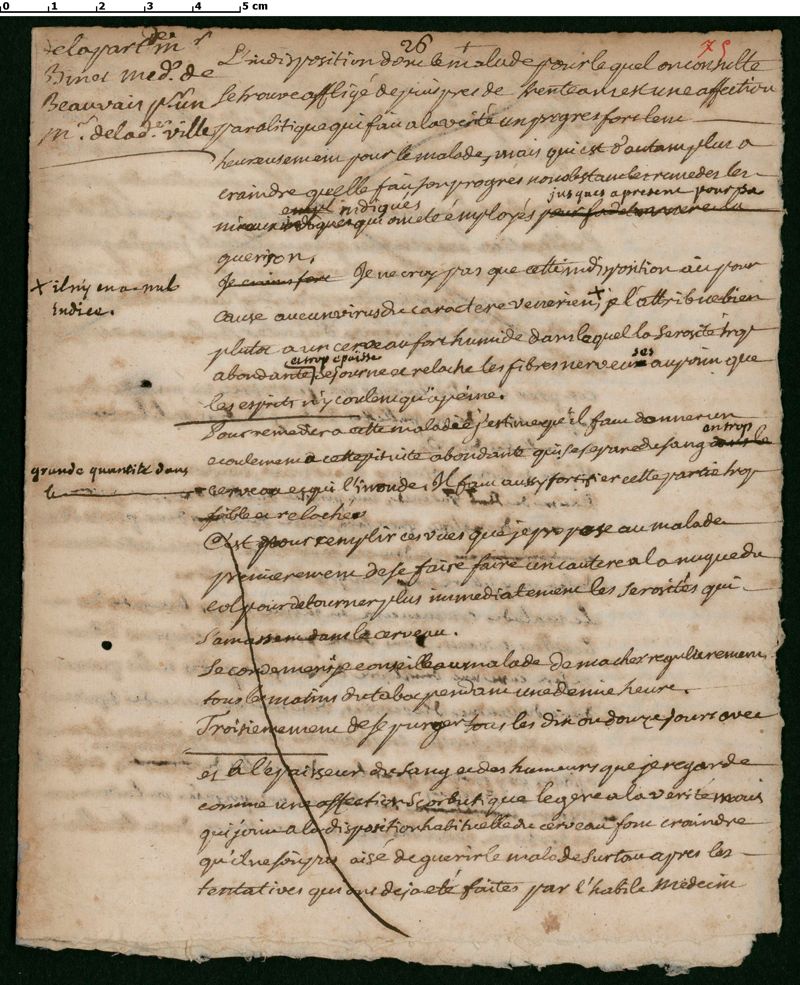 26
75
de la part de mr
Binet med. de
Beauvais pr un
mr. de lad. ville
L'indisposition dont le malade pour lequel on consulte
se trouve affligé depuis pres de trente ans est une affection
paralitique qui fait a la verité un progres fort lent
heureusement pour le malade, mais qui est d'autant plus a
craindre quelle fait son progres nonobstant les remedes les
jusques a present pour sa
indiqués
mieux qui ont eté employés
guerison.
Je crains fort Je ne croy pas que cette indisposition ait pour
x il n'y en a nul
indice.
cause aucun virus du caractere venerien, x je l'attribue bien
plutot a un cerveau fort humide dans laquel la serosité trop
et trop epaisse
abondante sejourne et relache les fibres nerveuses au point que
les esprits n'y coulent qu'a peine.
Pour remedier a cette maladie j'estime qu'il faut donner un
en trop
ecoulement a cette pituite abondante qui se separe du sang dans le
grande quantité dans
le
cerveau et qui l'inonde. Il faut aussy fortifier cette partie trop
foible et relachée
C'est pour remplir ces vues que je propose au malade
premierement de se faire faire un cautere a la nuque du
col pour detourner plus immediatement les serosités qui
s'amassent dans le cerveau.
Secondement je conseille au malade de macher regulierement
tous les matins du tabac pendant une demie heure.
Troisiemement de se purger tous les dix ou douze jours avec
et a l'epaisseur du sang et des humeurs que je regarde
comme une affection scorbutique legere a la verité mais
qui joint a la disposition habituelle du cerveau font craindre
qu'il ne soit pas aisé de guerir le malade surtout apres les
tentatives qui ont deja eté faites par l'habile Medecin